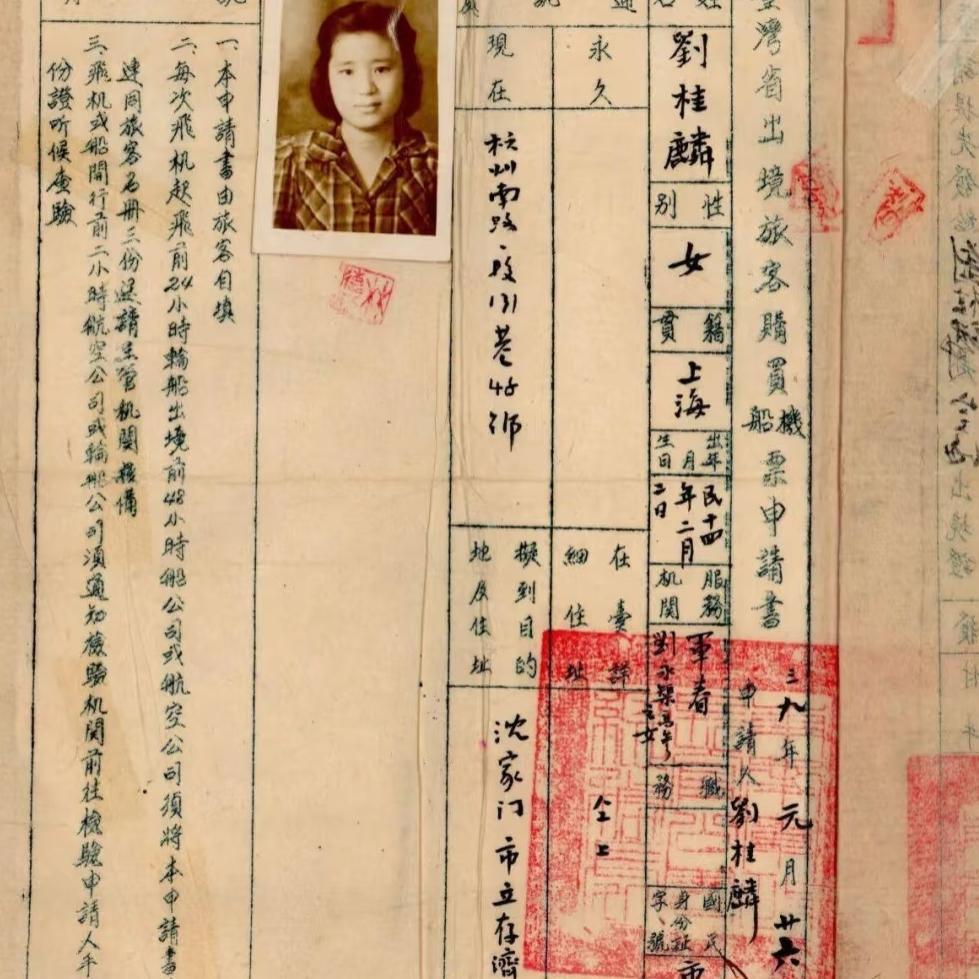 臺灣省出境旅客購買機船票申請書
三九年元月廿六
申請人劉桂麟
姓名
劉桂麟
性別
女
籍貫
上海
出生年月日
民十四年二月二日
服務機關
軍眷
職務
國民身份證字號
市
永久
現在
杭州南路一段131巷45號
在臺詳細住址
仝上
擬到目的地及住址
沈家门市立存濟
一、本申請書由旅客自填
二、每次飛机起飛前24小時輪船出境前48小時船公司或航空公司須將本申請書
連同旅客名冊三份送請主管机關核備
三、飛机或船開行前二小時航空公司或輪船公司須通知檢驗机關前往檢驗申請人平
份證听候查驗